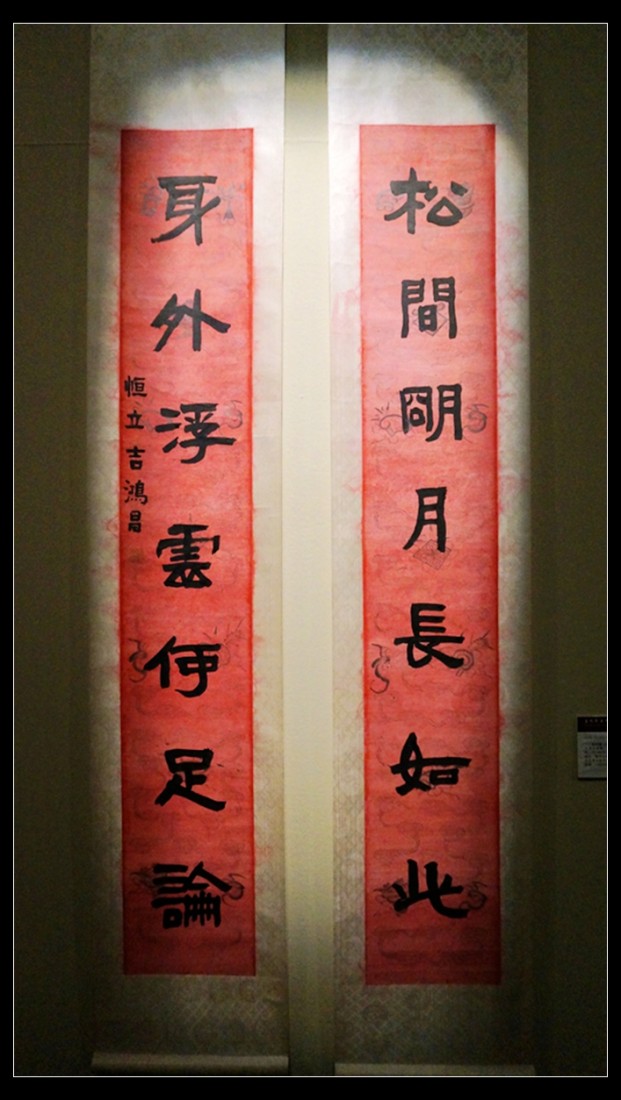 松間朙月長如此
身外浮雲何足論
恒立吉鴻昌